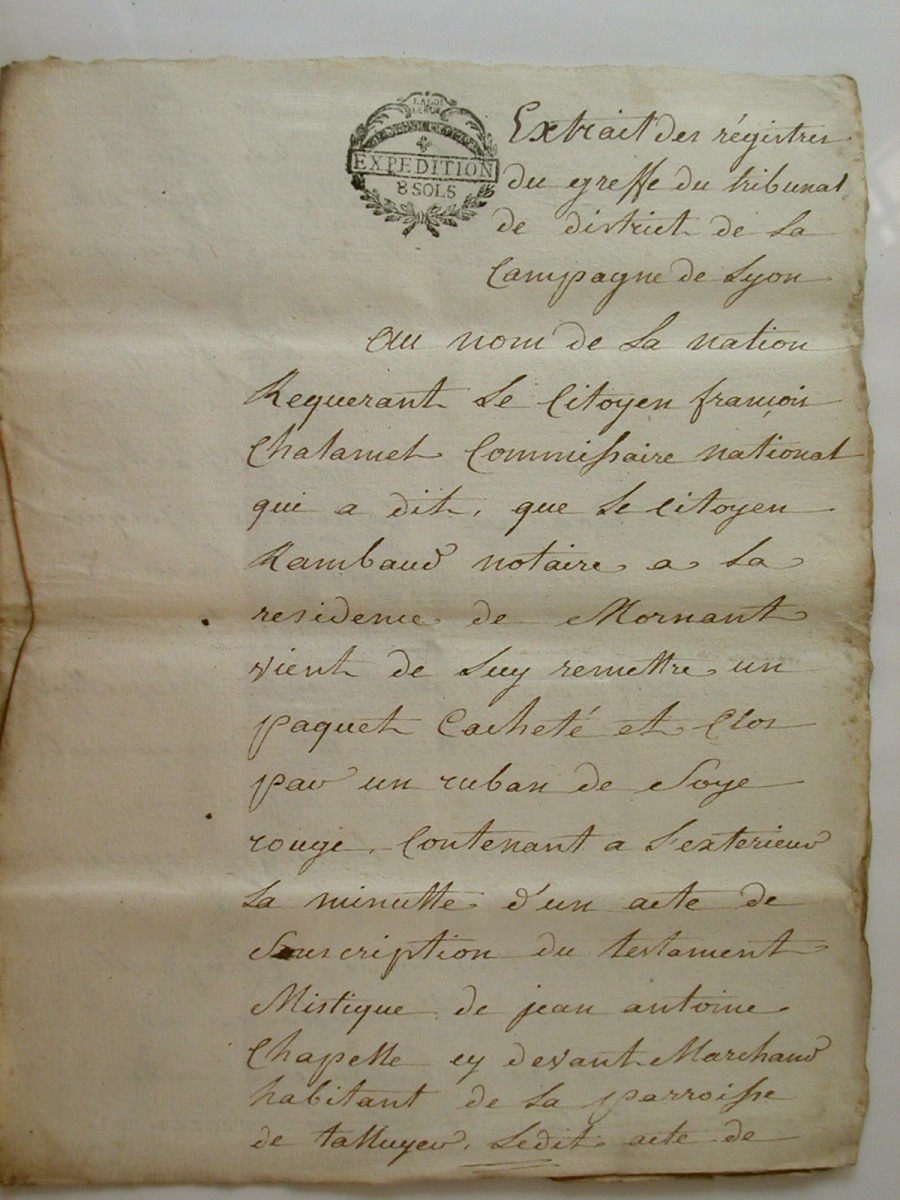 LA LOI
LE ROI
EXPEDITION
8 SOLS
Extrait des régistres
du greffe du tribunal
de district de La
Campagne de Lyon
Au nom de la nation
Requerant Le Citoyen françois
Chalamet Commissaire national
qui a dit, que le citoyen
Rambaud notaire a la
residence de Mornant
vient de Luy remettre un
paquet Cacheté et Clos
par un ruban de Soye
rouge, Contenant a L'exterieur
La minutte d'un acte de
Souscription du testament
Mistique de jean antoine
Chapelle cy devant Marchand
habitant de La parroisse
de talluyer, Ledit acte de